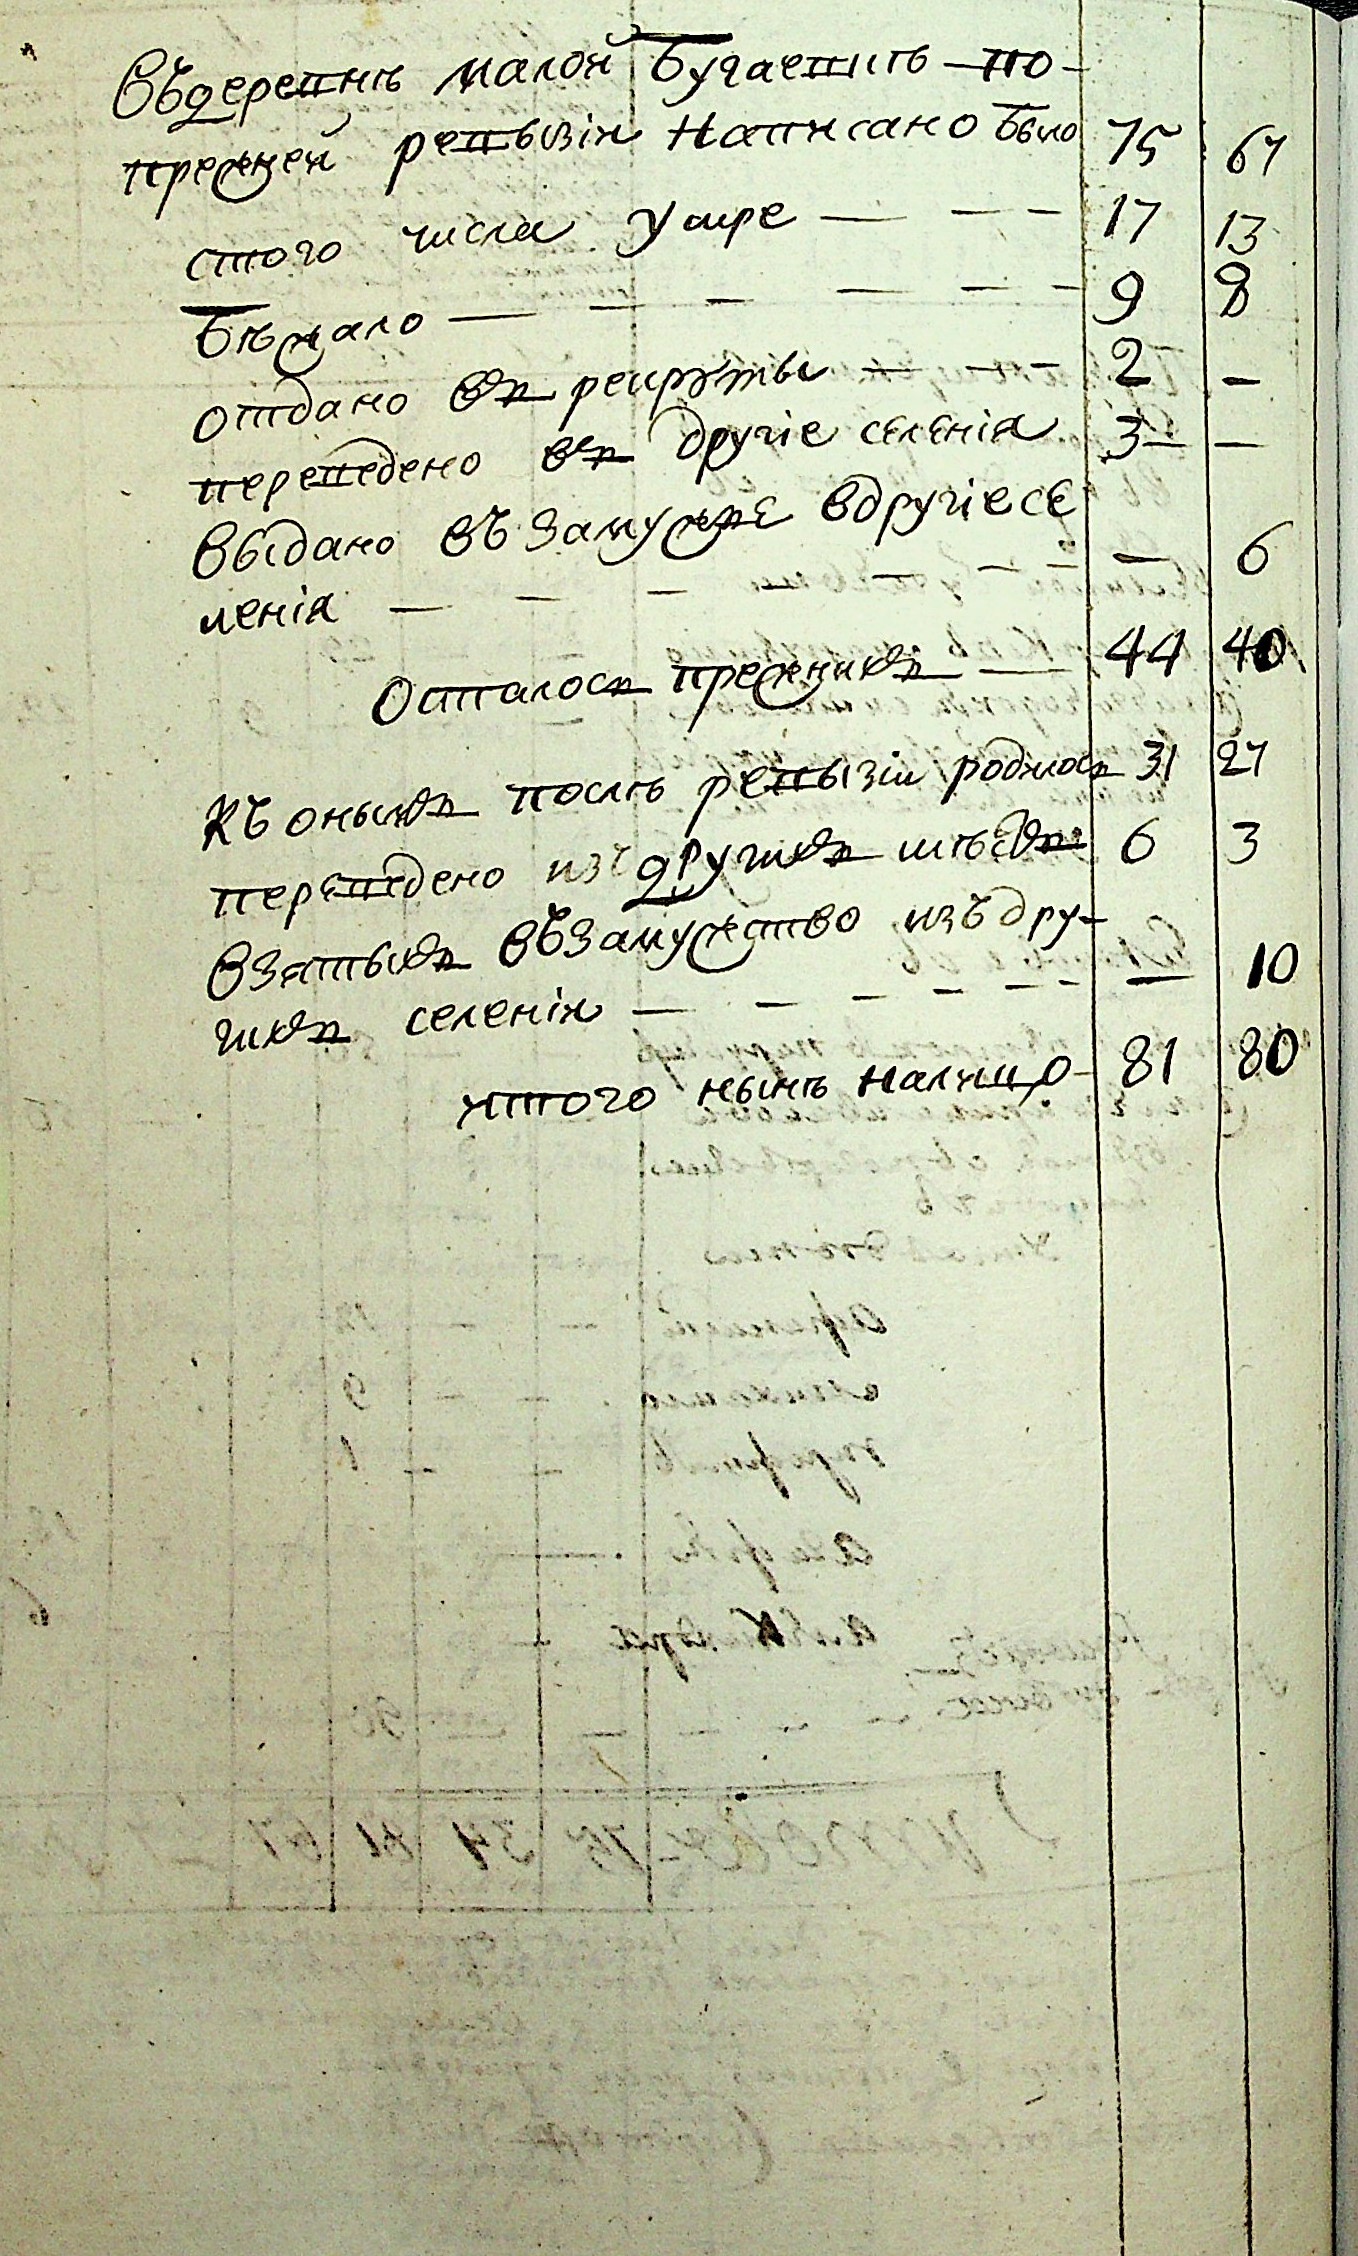 Въдеревнѣ малой Бугаевкѣ по-
прежней ревизіи написано было 75 67
стого числа умре — — — 17 13
Бѣжало — — — — — — 9 8
отдано въ рекруты — — — 2 —
переведено въ другіе селенія 3 — —
выдано въ замужье вдругіесе
ленія — — — — — — — 6
Осталось прежнихъ — 44 40
Къ онымъ послѣ ревизіи родилось 31 27
переведено изъ другихъ мѣстъ 6 3
взятыхъ въ замужство изъ дру-
гихъ селеній — — — — — — — 10
итого нынѣ налицо 81 80